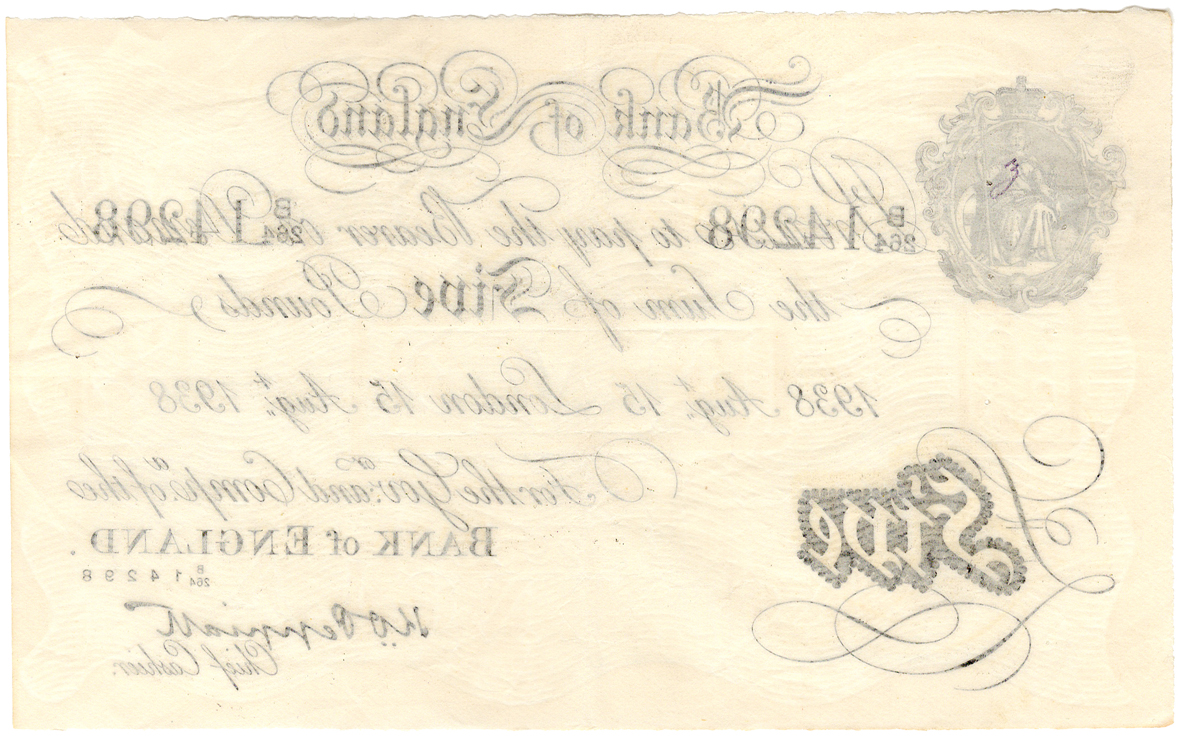 Bank of England
B
264 14298
B
264 14298
Promise to pay the Bearer on Demand
the Sum of Five Pounds
1938 Augt. 15 London 15 Augt. 1938
For the Govr. and Compa. of the
BANK of ENGLAND.
B
264 14298
K O Peppiatt
Chief Cashier.
Five
3